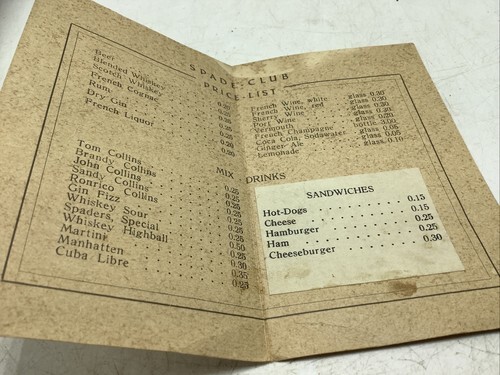 SPADE-CLUB
PRICE-LIST
Beer
Blended Whiskey
Scotch Whiskey
French Cognac
Rum
Dry Gin
French Liquor
French Wine, white glass 0.30
French Wine, red glass 0.30
Sherry Wine glass 0.30
Port Wine glass 0.30
Vermouth glass 0.20
French Champagne bottle 3.00
Coca Cola, Sodawater glass 0.05
Ginger Ale glass 0.05
Lemonade glass 0.10
MIX DRINKS
Tom Collins 0.25
Brandy Collins 0.25
John Collins 0.25
Sandy Collins 0.25
Ronrico Collins 0.25
Gin Fizz 0.25
Whiskey Sour 0.25
Spaders, Special 0.50
Whiskey Highball 0.25
Martini 0.30
Manhatten 0.35
Cuba Libre 0.25
SANDWICHES
Hot-Dogs 0.15
Cheese 0.15
Hamburger 0.25
Ham 0.25
Cheeseburger 0.30